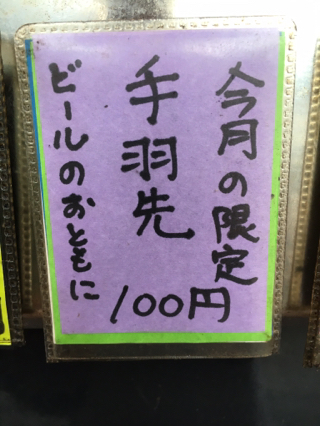 今月の限定
手羽先
100円
ビールのおともに